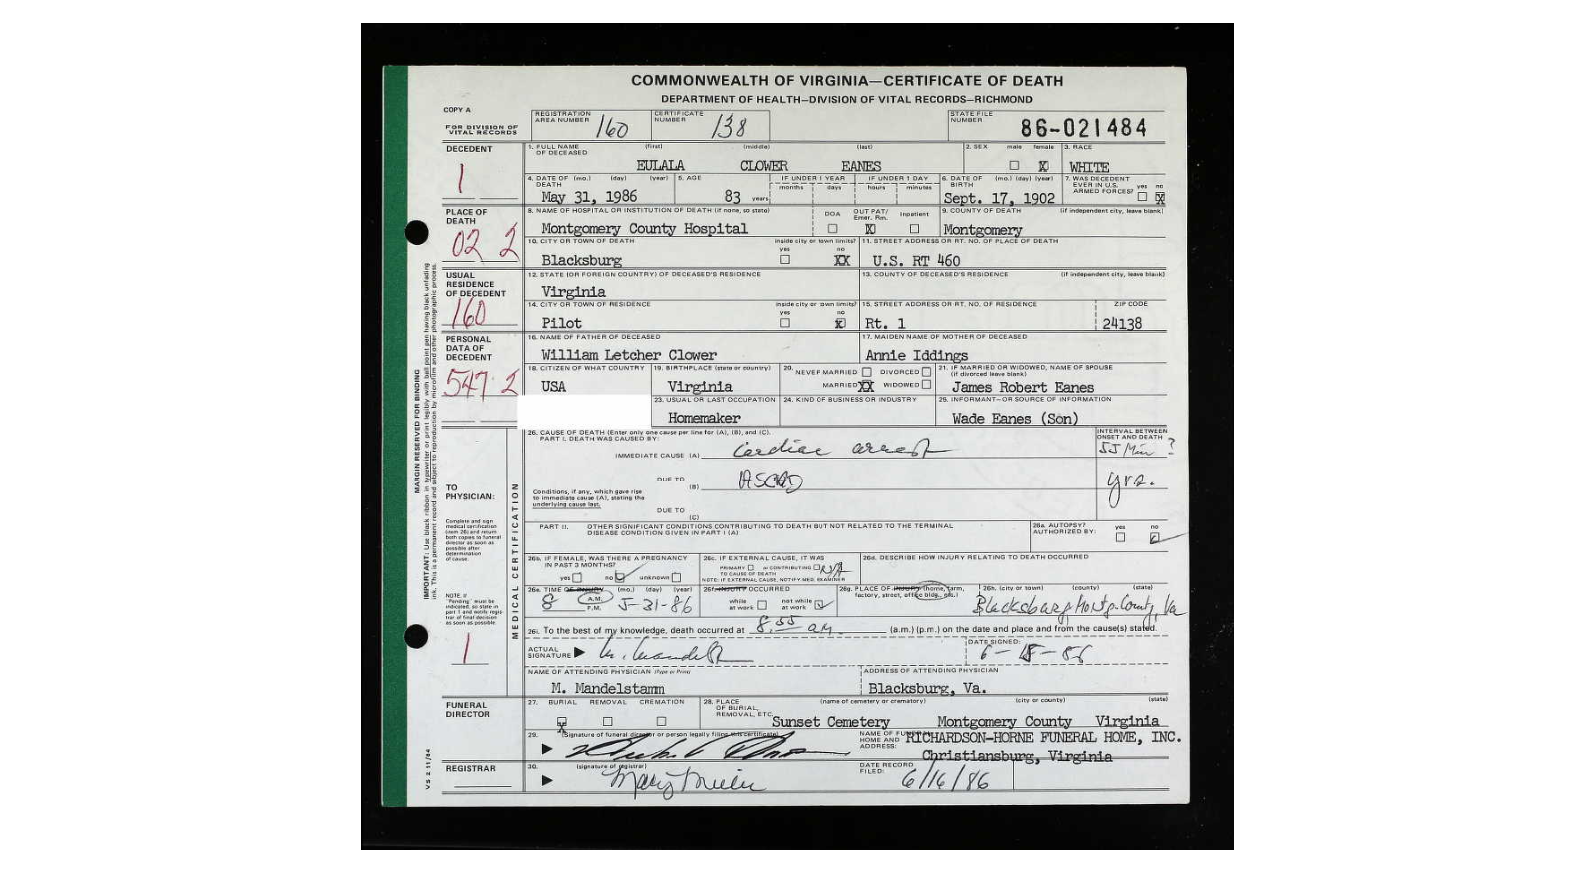 COMMONWEALTH OF VIRGINIA—CERTIFICATE OF DEATH
DEPARTMENT OF HEALTH—DIVISION OF VITAL RECORDS—RICHMOND
COPY A
FOR DIVISION OF VITAL RECORDS
REGISTRATION AREA NUMBER 160
CERTIFICATE NUMBER 138
STATE FILE NUMBER 86-021484
DECEDENT
1
1. FULL NAME OF DECEASED (first) (middle) (last)
EULALA CLOWER EANES
2. SEX male female X
3. RACE WHITE
4. DATE OF DEATH (mo.) (day) (year)
May 31, 1986
5. AGE 83 years
IF UNDER 1 YEAR months days
IF UNDER 1 DAY hours minutes
6. DATE OF BIRTH (mo.) (day) (year)
Sept. 17, 1902
7. WAS DECEDENT EVER IN U.S. ARMED FORCES? yes no X
PLACE OF DEATH
02 2
8. NAME OF HOSPITAL OR INSTITUTION OF DEATH (if none, so state)
Montgomery County Hospital
DOA OUT PAT/ Emer. Rm. X Inpatient
9. COUNTY OF DEATH (if independent city, leave blank)
Montgomery
10. CITY OR TOWN OF DEATH
Blacksburg
inside city or town limits? yes no XX
11. STREET ADDRESS OR RT. NO. OF PLACE OF DEATH
U.S. RT 460
USUAL RESIDENCE OF DECEDENT
160
12. STATE (OR FOREIGN COUNTRY) OF DECEASED'S RESIDENCE
Virginia
13. COUNTY OF DECEASED'S RESIDENCE (if independent city, leave blank)
14. CITY OR TOWN OF RESIDENCE
Pilot
inside city or town limits? yes no X
15. STREET ADDRESS OR RT. NO. OF RESIDENCE
Rt. 1
ZIP CODE
24138
PERSONAL DATA OF DECEDENT
547 2
16. NAME OF FATHER OF DECEASED
William Letcher Clower
17. MAIDEN NAME OF MOTHER OF DECEASED
Annie Iddings
18. CITIZEN OF WHAT COUNTRY
USA
19. BIRTHPLACE (state or country)
Virginia
20. NEVER MARRIED DIVORCED
MARRIED XX WIDOWED
21. IF MARRIED OR WIDOWED, NAME OF SPOUSE (if divorced leave blank)
James Robert Eanes
23. USUAL OR LAST OCCUPATION
Homemaker
24. KIND OF BUSINESS OR INDUSTRY
25. INFORMANT—OR SOURCE OF INFORMATION
Wade Eanes (Son)
MARGIN RESERVED FOR BINDING
IMPORTANT: Use black ribbon in typewriter or print legibly with ball point pen having black unfading ink. This is a permanent record and subject to reproduction by microfilm and other photographic process.
MEDICAL CERTIFICATION
TO PHYSICIAN:
Complete and sign medical certification (item 26) and return both copies to funeral director as soon as possible after determination of cause.
NOTE: If "Pending" must be indicated, so state in part 1 and notify registrar of final decision as soon as possible
1
26. CAUSE OF DEATH (Enter only one cause per line for (A), (B), and (C).
PART I. DEATH WAS CAUSED BY:
INTERVAL BETWEEN ONSET AND DEATH
IMMEDIATE CAUSE (A) Cardiac arrest 55 Min ?
DUE TO (B) ASCVD yrs.
Conditions, if any, which gave rise to immediate cause (A), stating the underlying cause last.
DUE TO (C)
PART II. OTHER SIGNIFICANT CONDITIONS CONTRIBUTING TO DEATH BUT NOT RELATED TO THE TERMINAL DISEASE CONDITION GIVEN IN PART I (A)
26a. AUTOPSY? AUTHORIZED BY: yes no
26b. IF FEMALE, WAS THERE A PREGNANCY IN PAST 3 MONTHS?
yes no unknown
26c. IF EXTERNAL CAUSE, IT WAS
PRIMARY or CONTRIBUTING N/A
TO CAUSE OF DEATH
NOTE: IF EXTERNAL CAUSE, NOTIFY MED. EXAMINER
26d. DESCRIBE HOW INJURY RELATING TO DEATH OCCURRED
26e. TIME OF INJURY (mo.) (day) (year)
8 A.M. P.M. 5-31-86
26f. INJURY OCCURRED
while at work not while at work
26g. PLACE OF INJURY (home, farm, factory, street, office bldg., etc.)
26h. (city or town) (county) (state)
Blacksburg Montg. County, Va
26i. To the best of my knowledge, death occurred at 8:55 am (a.m.) (p.m.) on the date and place and from the cause(s) stated.
ACTUAL SIGNATURE M. Mandelst
DATE SIGNED: 6-15-86
NAME OF ATTENDING PHYSICIAN (Type or Print)
M. Mandelstamm
ADDRESS OF ATTENDING PHYSICIAN
Blacksburg, Va.
FUNERAL DIRECTOR
27. BURIAL REMOVAL CREMATION
X
28. PLACE OF BURIAL, REMOVAL, ETC. (name of cemetery or crematory) (city or county) (state)
Sunset Cemetery Montgomery County Virginia
29. (Signature of funeral director or person legally filing this certificate)
NAME OF FUNERAL HOME AND ADDRESS:
RICHARDSON-HORNE FUNERAL HOME, INC.
Christiansburg, Virginia
REGISTRAR
30. (signature of registrar)
Mary Miller
DATE RECORD FILED: 6/16/86
VS 2 11/84